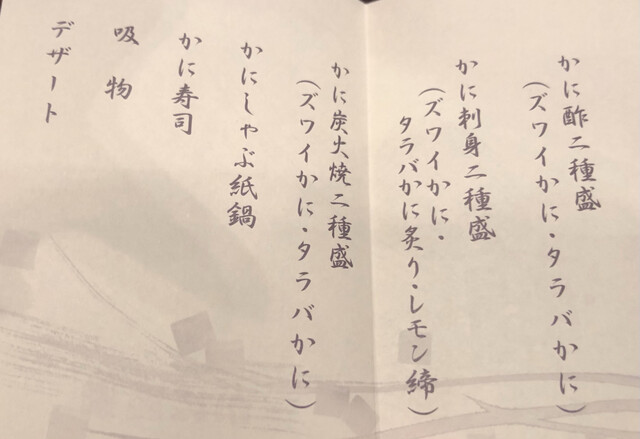 かに酢二種盛
（ズワイかに・タラバかに）
かに刺身二種盛
（ズワイかに・
タラバかに炙り・レモン締）
かに炭火焼二種盛
（ズワイかに・タラバかに）
かにしゃぶ紙鍋
かに寿司
吸物
デザート